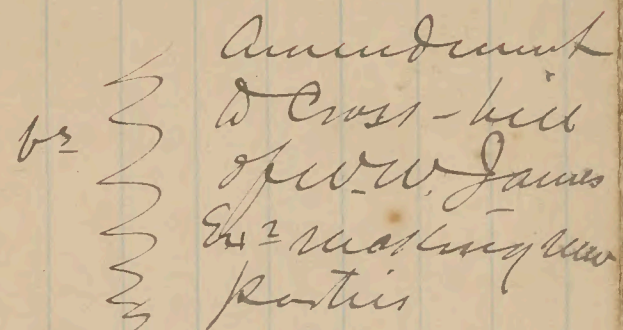 Amendment
to Cross-bill
vs of W. W. James
Exr making new
parties